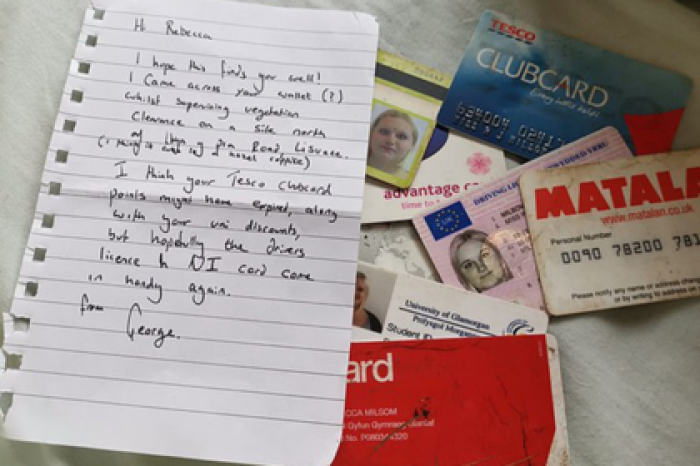 Hi Rebecca
I hope this finds you well!
I came across your wallet (?)
whilst supervising vegetation
clearance on a site north
of Road, Lisvane.
(I think it was in a hazel coppice)
I think your Tesco clubcard
points might have expired, along
with your uni discounts,
but hopefully the drivers
licence & NI card come
in handy again.
from
George.
TESCO
CLUBCARD
634004
advantage card
time to
DRIVING
MATALAN
www.matalan.co.uk
Personal Number
0090 78200 781
Please notify any name or address change
or by writing to
University of Glamorgan
Prifysgol Morgannwg
Student ID
ard
CCA MILSOM
Gyfun Gymraeg
No.